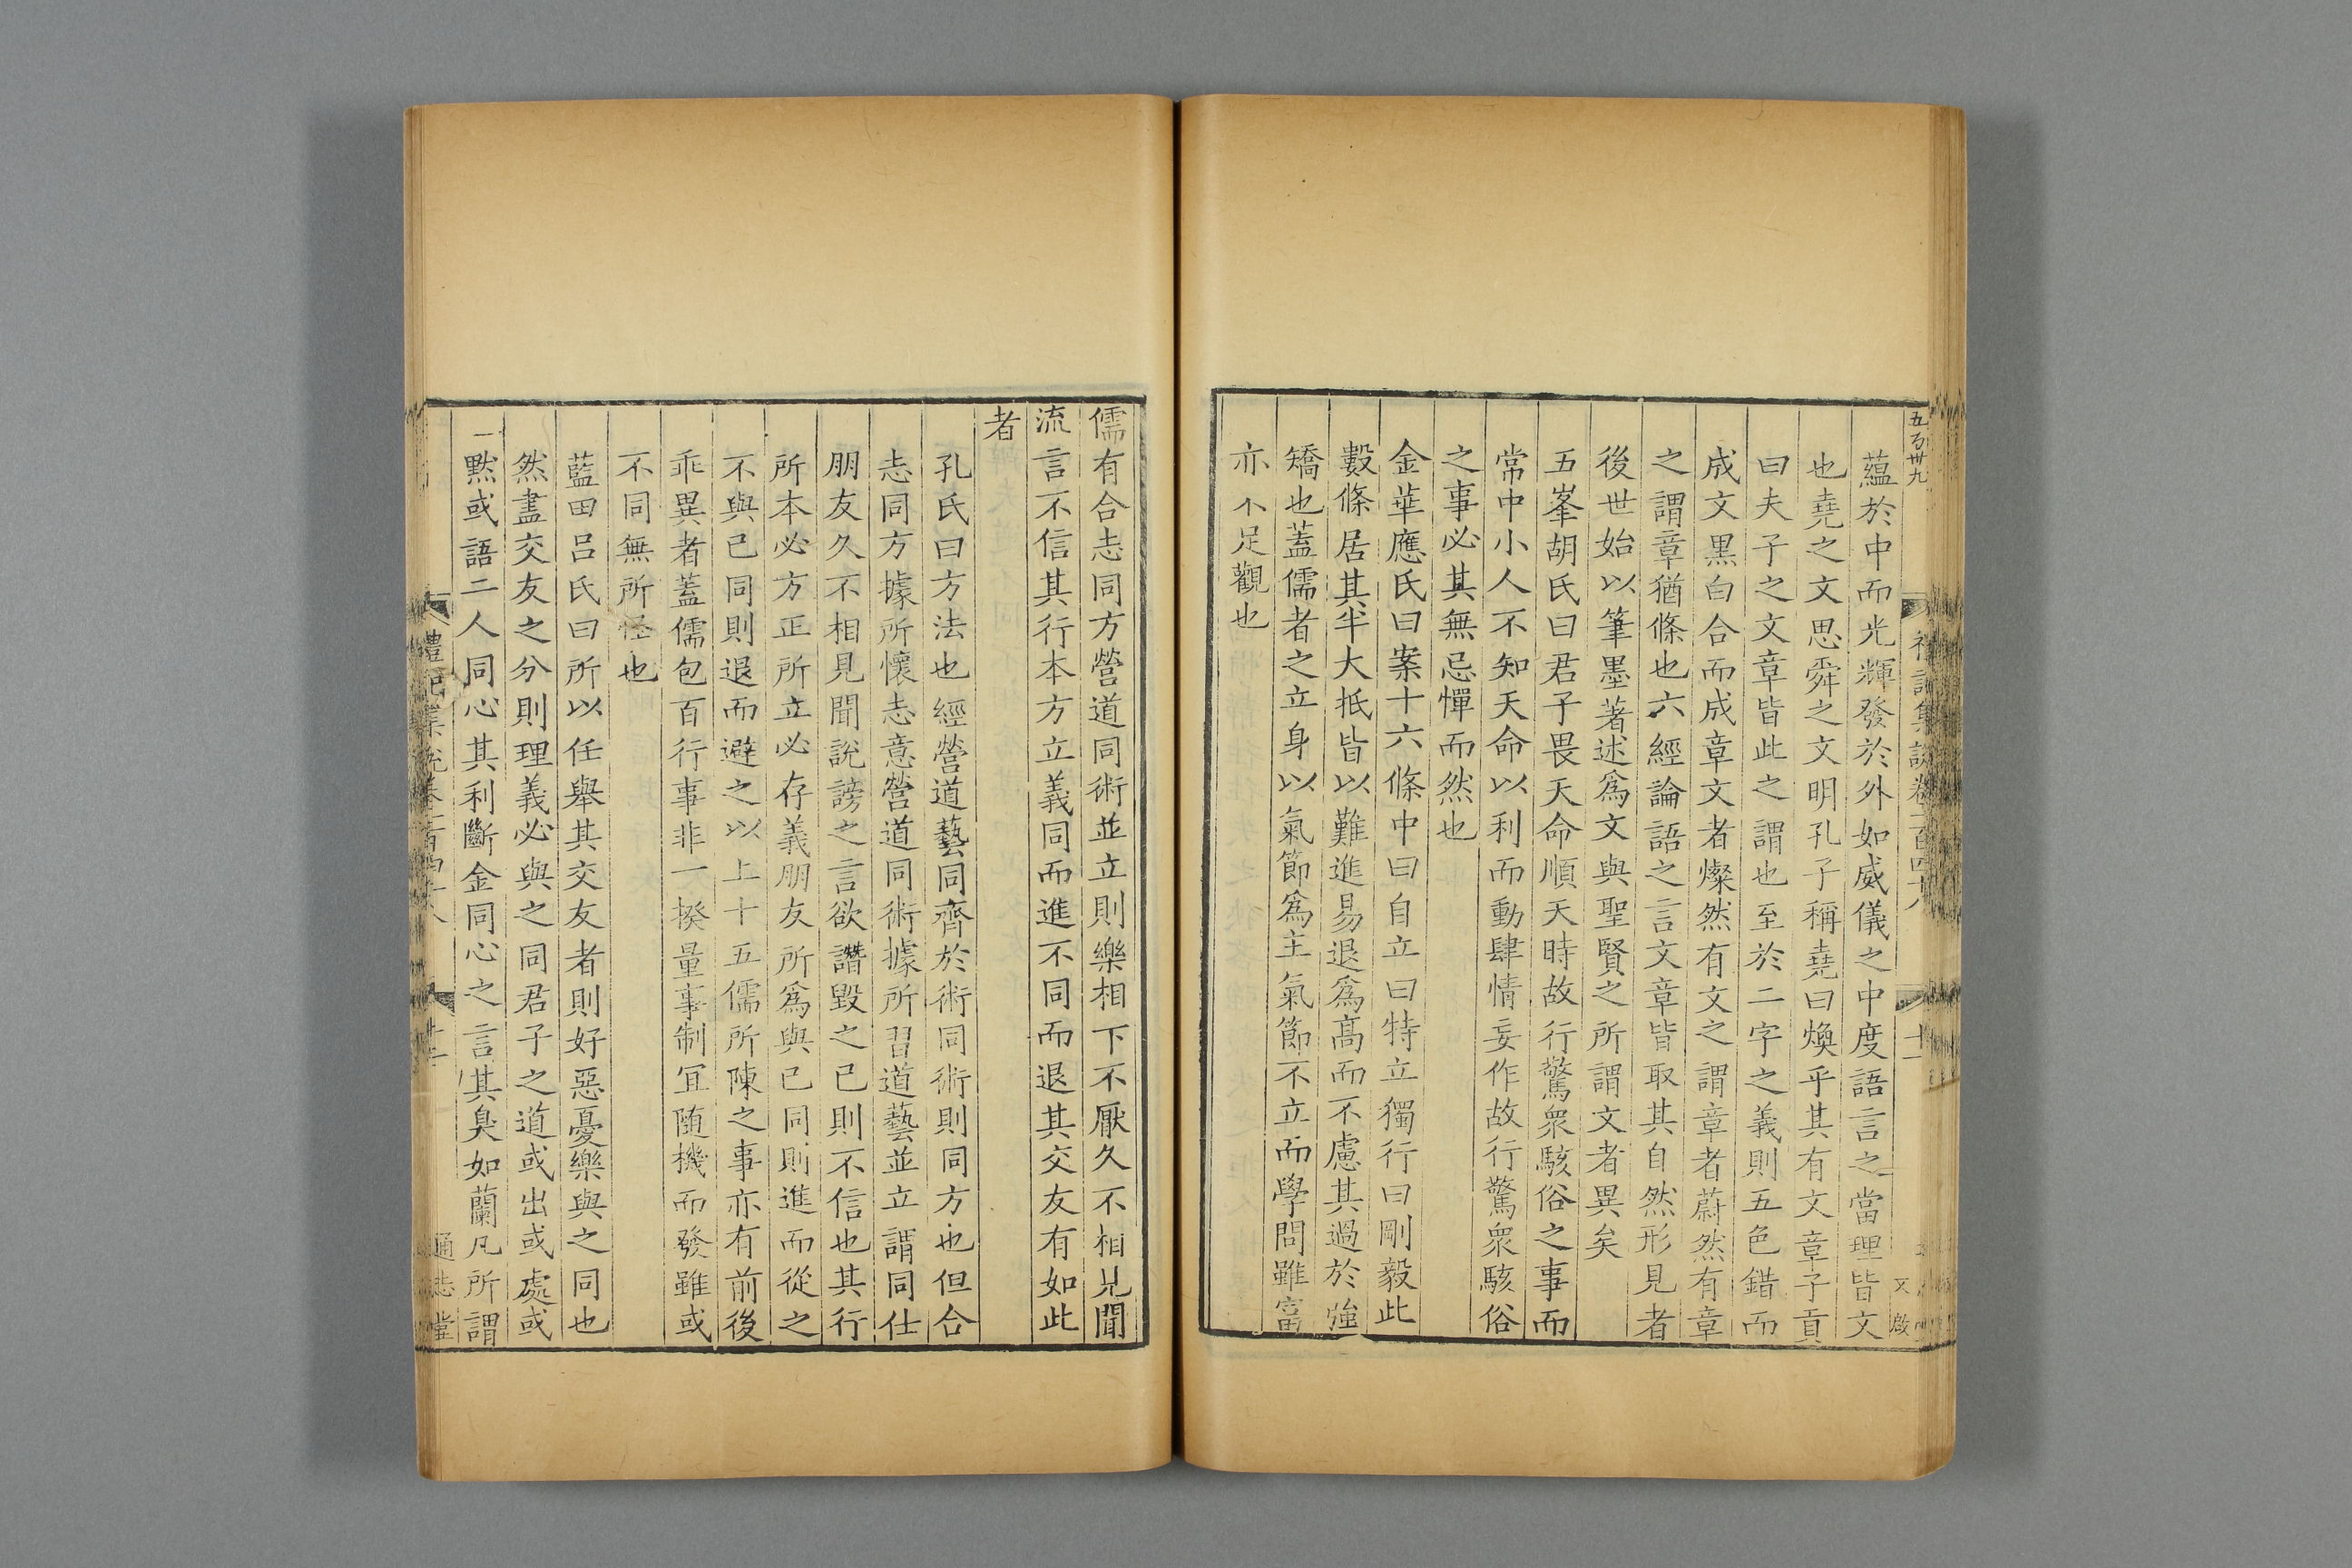 五百卅九
蘊於中而光輝發於外如威儀之中度語言之當理皆文
也堯之文思舜之文明孔子稱堯曰煥乎其有文章子貢
曰夫子之文章皆此之謂也至於二字之義則五色錯而
成文黑白合而成章文者燦然有文之謂章者蔚然有章
之謂章猶條也六經論語之言文章皆取其自然形見者
後世始以筆墨著述爲文與聖賢之所謂文者異矣
五峯胡氏曰君子畏天命順天時故行驚衆駭俗之事而
常中小人不知天命以利而動肆情妄作故行驚衆駭俗
之事必其無忌憚而然也
金華應氏曰案十六條中曰自立曰特立獨行曰剛毅此
數條居其半大抵皆以難進易退爲高而不慮其過於強
矯也蓋儒者之立身以氣節爲主氣節不立而學問雖富
亦不足觀也
儒有合志同方營道同術並立則樂相下不厭久不相見聞
流言不信其行本方立義同而進不同而退其交友有如此
者
孔氏曰方法也經營道藝同齊於術同術則同方也但合
志同方據所懷志意營道同術據所習道藝並立謂同仕
朋友久不相見聞說謗之言欲譖毀之己則不信也其行
所本必方正所立必存義朋友所爲與己同則進而從之
不與己同則退而避之以上十五儒所陳之事亦有前後
乖異者蓋儒包百行事非一揆量事制冝隨機而發雖或
不同無所怪也
藍田呂氏曰所以任舉其交友者則好惡憂樂與之同也
然盡交友之分則理義必與之同君子之道或出或處或
默或語二人同心其利斷金同心之言其臭如蘭凡所謂
禮記集說卷一百四十八
通志堂